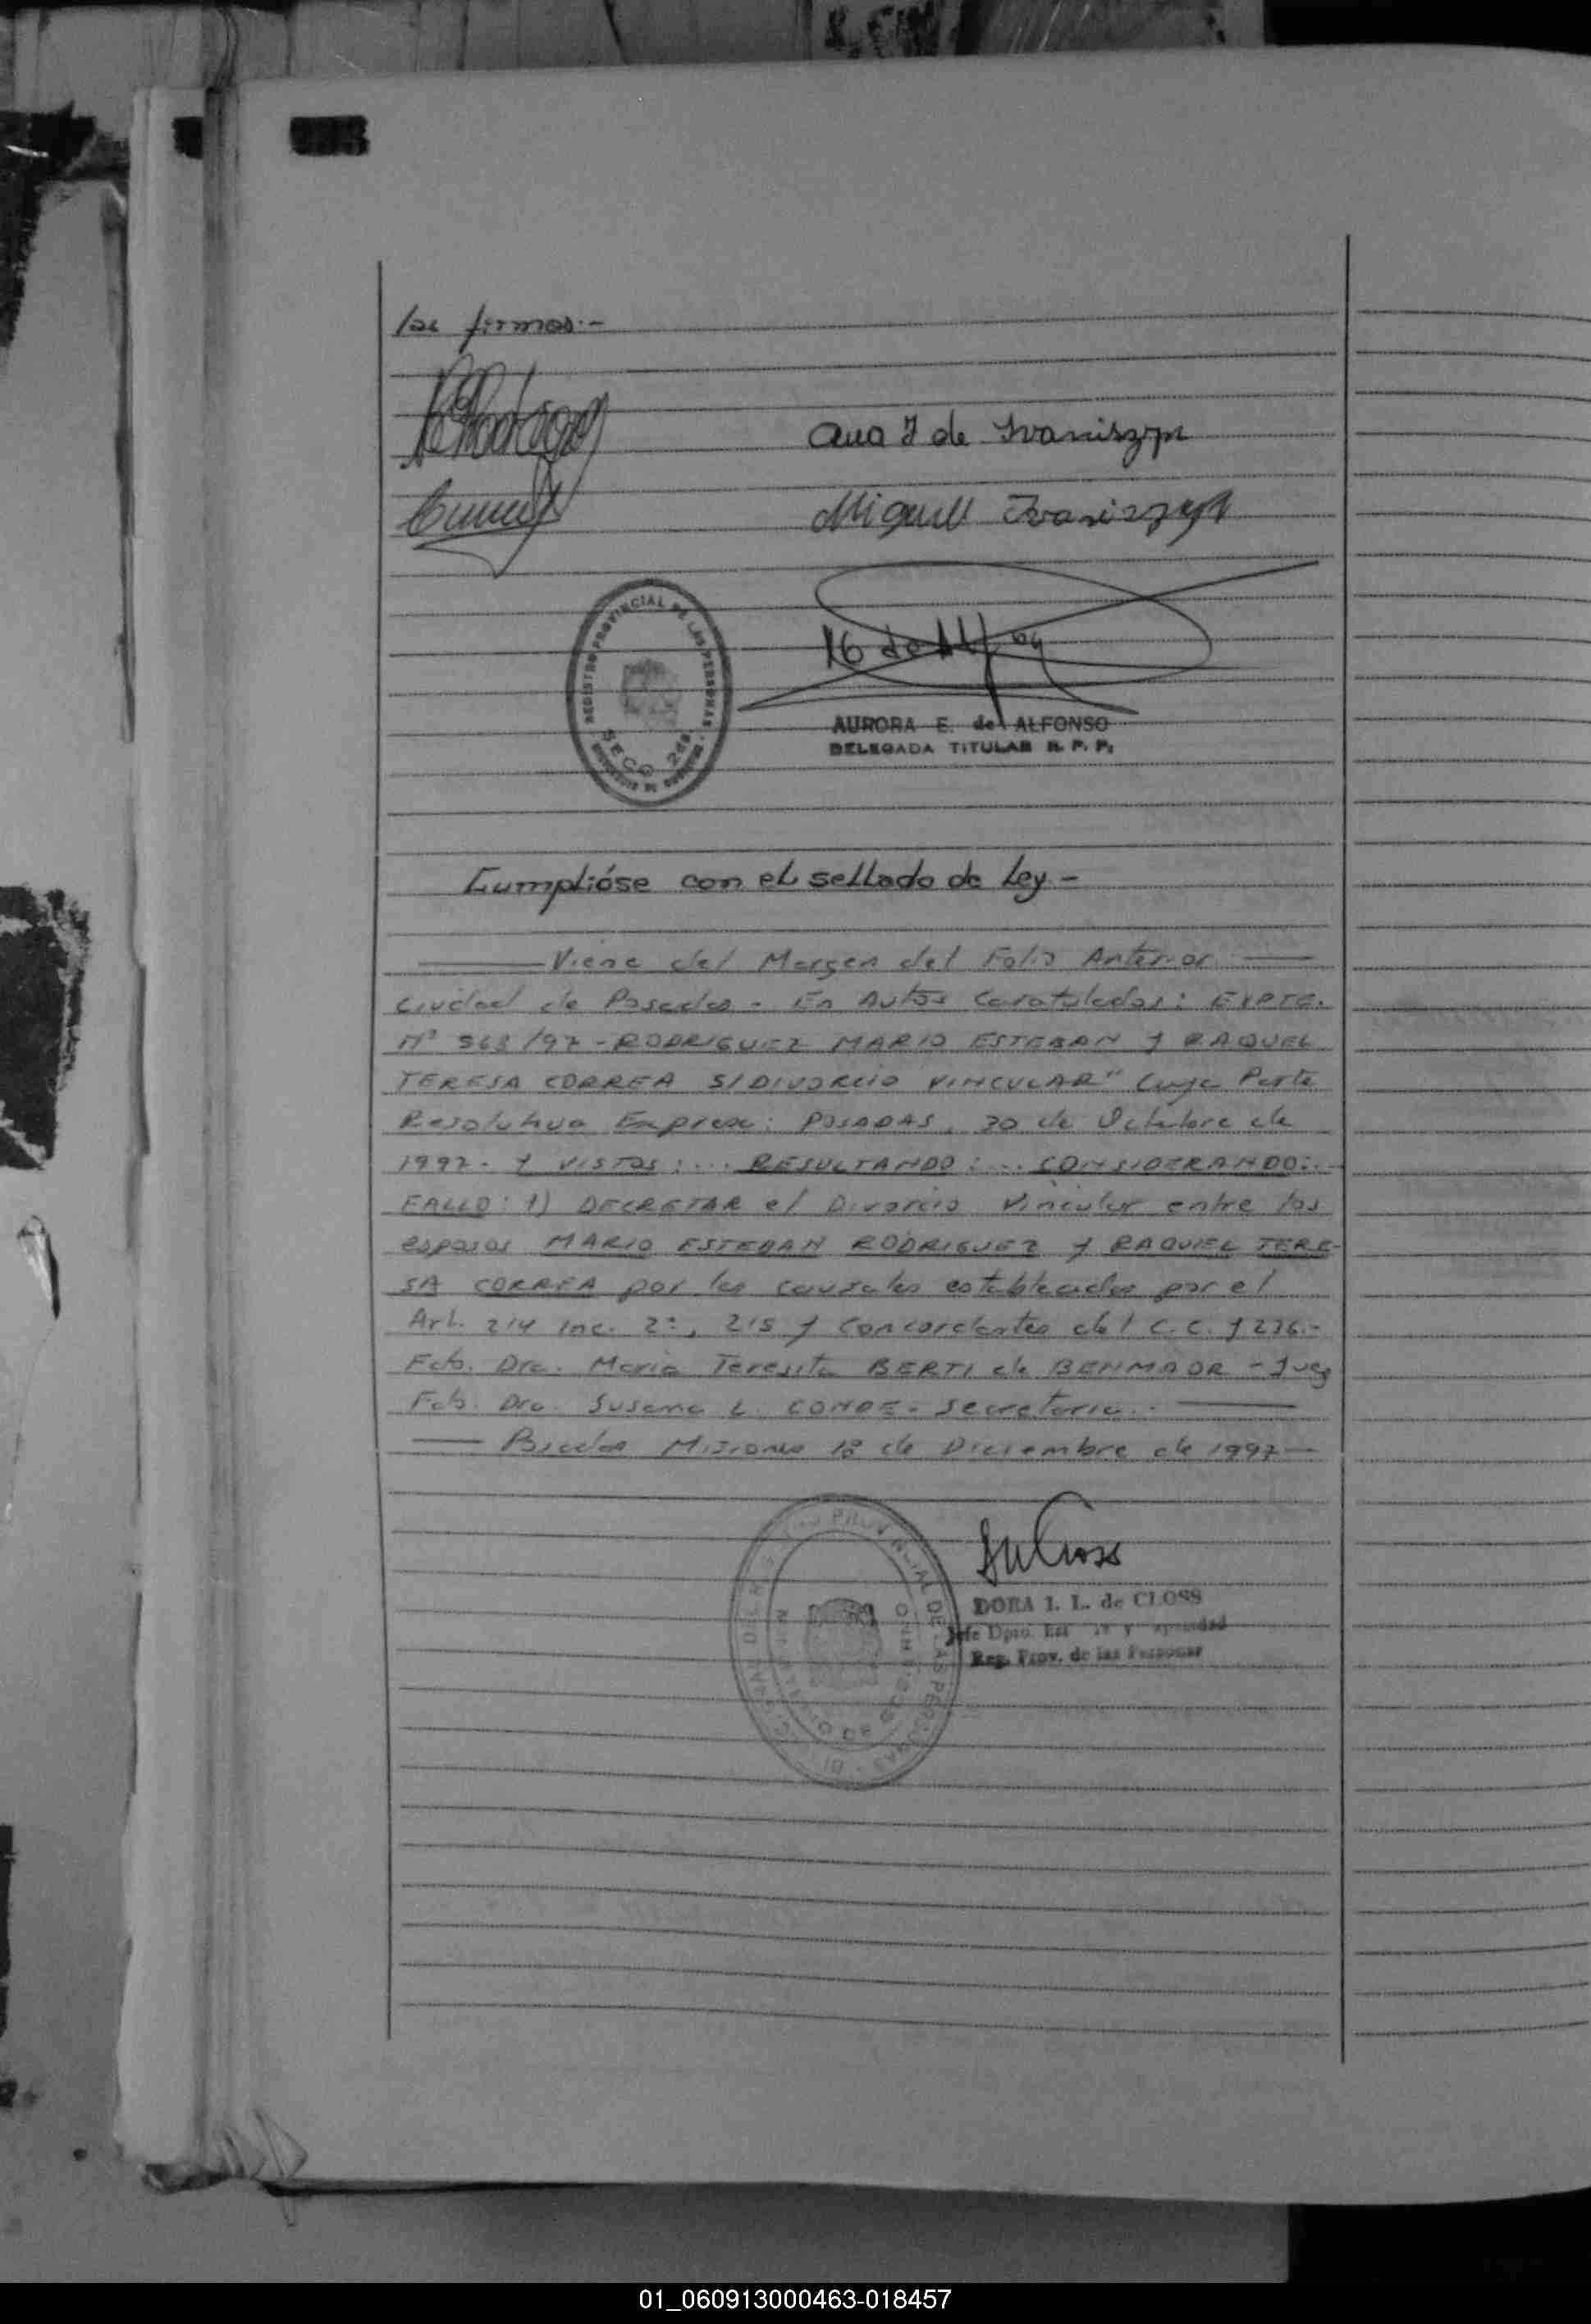 las firmas.-
Ana J de Ivaniszyn
Miguel Ivaniszyn
REGISTRO PROVINCIAL DE LAS PERSONAS
SECC. 2da
AURORA E. de ALFONSO
DELEGADA TITULAR R. P. P.
Cumplióse con el sellado de Ley.-
Viene del Margen del Folio Anterior
Ciudad de Posadas - En Autos Caratulados: EXPTE.
Nº 563/97 - RODRIGUEZ MARIO ESTEBAN Y RAQUEL
TERESA CORREA S/DIVORCIO VINCULAR" Cuya Parte
Resolutiva Expresa: POSADAS, 30 de Octubre de
1997.- Y VISTOS:... RESULTANDO:... CONSIDERANDO:..
FALLO: 1) DECRETAR el Divorcio Vincular entre los
esposos MARIO ESTEBAN RODRIGUEZ Y RAQUEL TERE-
SA CORREA por las causales establecidas por el
Art. 214 Inc. 2º, 215 y Concordantes del C.C. y 236.-
Fdo. Dra. Maria Teresita BERTI de BENMAOR - Juez
Fdo. Dra. Susana L. CONDE - Secretaria.-
Posadas Misiones 12 de Diciembre de 1997
DORA I. L. de CLOSS
Jefe Dpto. y
Reg. Prov. de las Personas
01_060913000463-018457